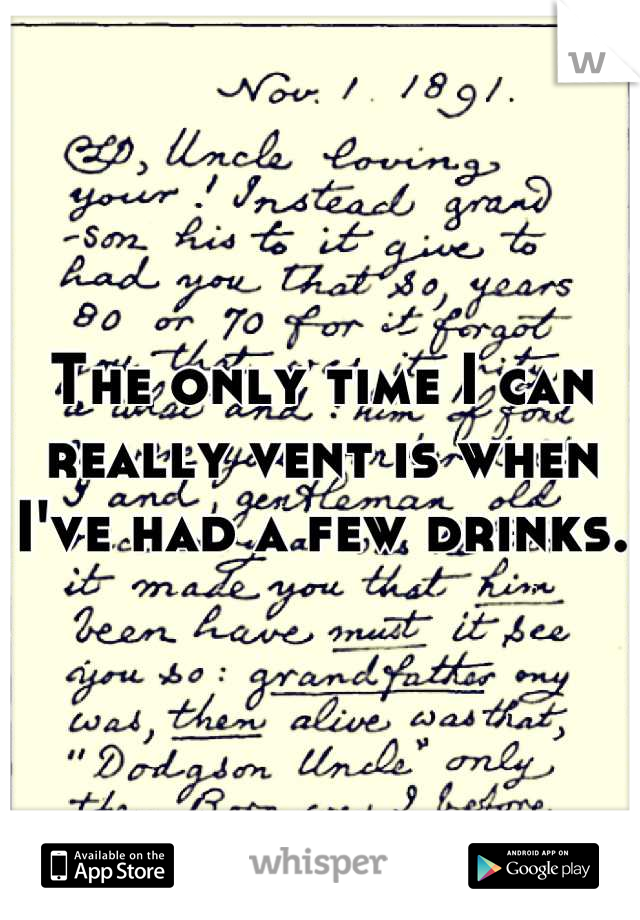 w
Nov. 1. 1891.
CLD, Uncle loving
your! Instead grand
-son his to it give to
had you that so, years
80 or 70 for it forgot
The only time I can
of fond
really vent is when
I and, gentleman old
I've had a few drinks.
it made you that him
been have must it see
you so: grandfather my
was, then alive was that,
"Dodgson Uncle" only
the Born I before
Available on the
App Store
whisper
ANDROID APP ON
Google play